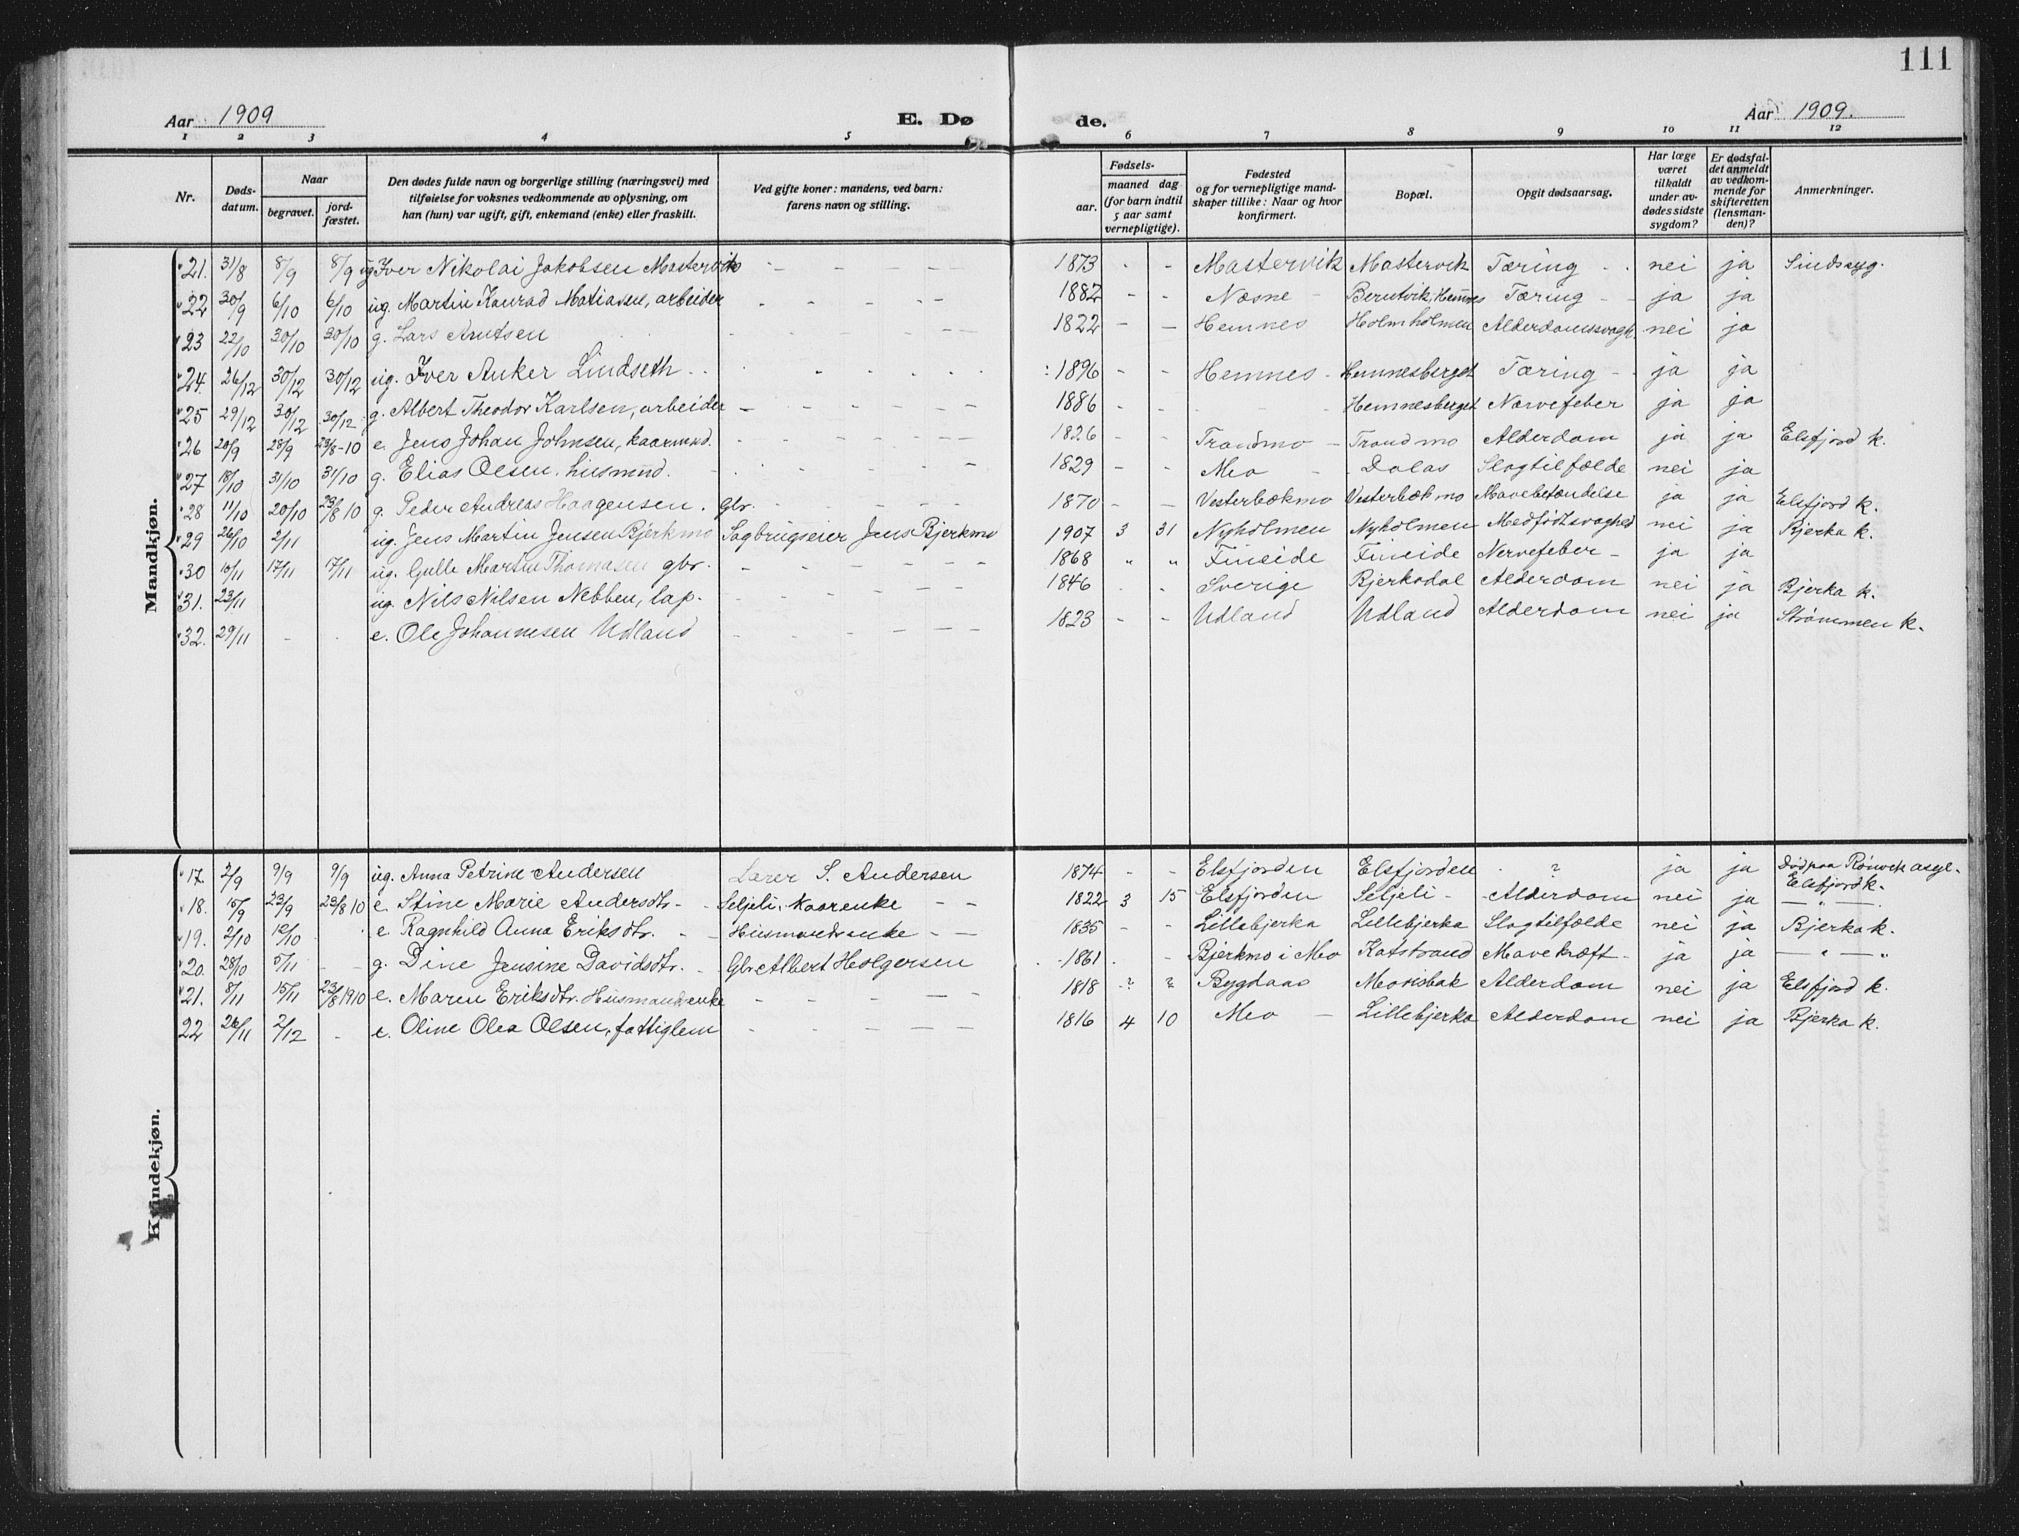 111
Aar 1909 E. Dø de. Aar 1909.
1 2 3 4 5 6 7 8 9 10 11 12
Nr. Døds-datum. Naar begravet. jord-fæstet. Den dødes fulde navn og borgerlige stilling (næringsvei) med tilføielse for voksnes vedkommende av oplysning, om han (hun) var ugift, gift, enkemand (enke) eller fraskilt. Ved gifte koner: mandens, ved barn: farens navn og stilling. Fødsels- aar. maaned dag (for barn indtil 5 aar samt vernepligtige). Fødested og for vernepligtige mandskaper tillike: Naar og hvor konfirmert. Bopæl. Opgit dødsaarsag. Har læge været tilkaldt under avdødes sidste sygdom? Er dødsfaldet anmeldt av vedkommende for skifteretten (lensmanden)? Anmerkninger.
Mandkjøn.
21. 31/8 8/9 8/9 ug Iver Nikolai Jakobsen Mastervik - - - - - 1873 - - Mastervik Mastervik Tæring - - nei ja Sindssyg.
22 30/9 6/10 6/10 ug. Martin Konrad Matiasen, arbeider - - - - - 1882 - - Næsne - Berutvik, Hemnes Tæring - - ja ja
23 22/10 30/10 30/10 g. Lars Arntsen - - - - - 1822 - - Hemnes Holmholmen Alderdomssvagh. nei ja
24. 26/12 30/12 30/12 ug. Iver Anker Lindseth - - - - - - 1896 - - Hemnes - Hemnesberget Tæring - - ja ja
25 29/12 30/12 30/12 g. Albert Theodor Karlsen, arbeider - - - - - 1886 - - - - Hemnesberget Nervefeber ja ja
26 20/9 28/9 23/8-10 e. Jens Johan Johnsen, kaarmnd. - - - - - 1826 - - Trondmo - Trondmo Alderdom ja ja Elsfjord k.
27 18/10 31/10 31/10 g. Elias Olsen, husmnd. - - - - - 1829 - - Mo - Dalas Slagtilfælde nei ja
28 11/10 20/10 23/8 10 g. Peder Andreas Haagensen. Gbr. - - - - - 1870 - - Vesterbækmo Vesterbækmo Mavebetændelse ja ja Elsfjord k.
29 26/10 2/11 ug. Jens Martin Jensen Bjerkmo Sagbrugseier Jens Bjerkmo 1907 3 31 Nyholmen Nyholmen Medfødt svaghed nei ja Bjerka k.
30 10/11 17/11 17/11 ug. Gulle Martin Thomasen gbr. - - - - - 1868 " " Fineide Fineide Nervefeber - ja ja
31. 23/11 ug. Nils Nilsen Nebben, lap. - - - - - 1846 - - Sverige Bjerkadal Alderdom nei ja Bjerka k.
32. 29/11 - - e. Ole Johannesen Udland - - - - - 1823 - - Udland Udland Alderdom nei ja Strømmen k.
Kvindekjøn.
17. 2/9 9/9 9/9 ug. Anna Petrine Andersen Lærer S. Andersen 1874 - - Elsfjorden Elsfjorden - ? ja ja Død paa Rønvik asyl. Elsfjord k.
18. 15/9 23/9 23/8 10 e. Stine Marie Andersdtr. - - Seljeli, Kaarenke - - 1822 3 15 Elsfjorden Seljeli - Alderdom nei ja — " —
19. 2/10 12/10 - e. Ragnhild Anna Eriksdtr. - - Husmandsenke - - 1835 - - Lillebjerka Lillebjerka Slagtilfælde nei ja Bjerka k.
20. 28/10 5/11 - - g. Dine Jensine Davidsdtr. - Gbr. Albert Holgersen 1861 - - Bjerkmo i Mo Katstrand Mavekræft - ja ja — " — "
21. 8/11 15/11 23/8 1910 e. Maren Eriksdtr. Husmandsenke - - - - - 1818 ? ? Bygdaas Morisbak Alderdom nei ja Elsfjord k.
22 26/11 2/12 - e. Oline Olea Olsen, fattiglem - - - - - 1816 4 10 Mo - Lillebjerka Alderdom nei ja Bjerka k.